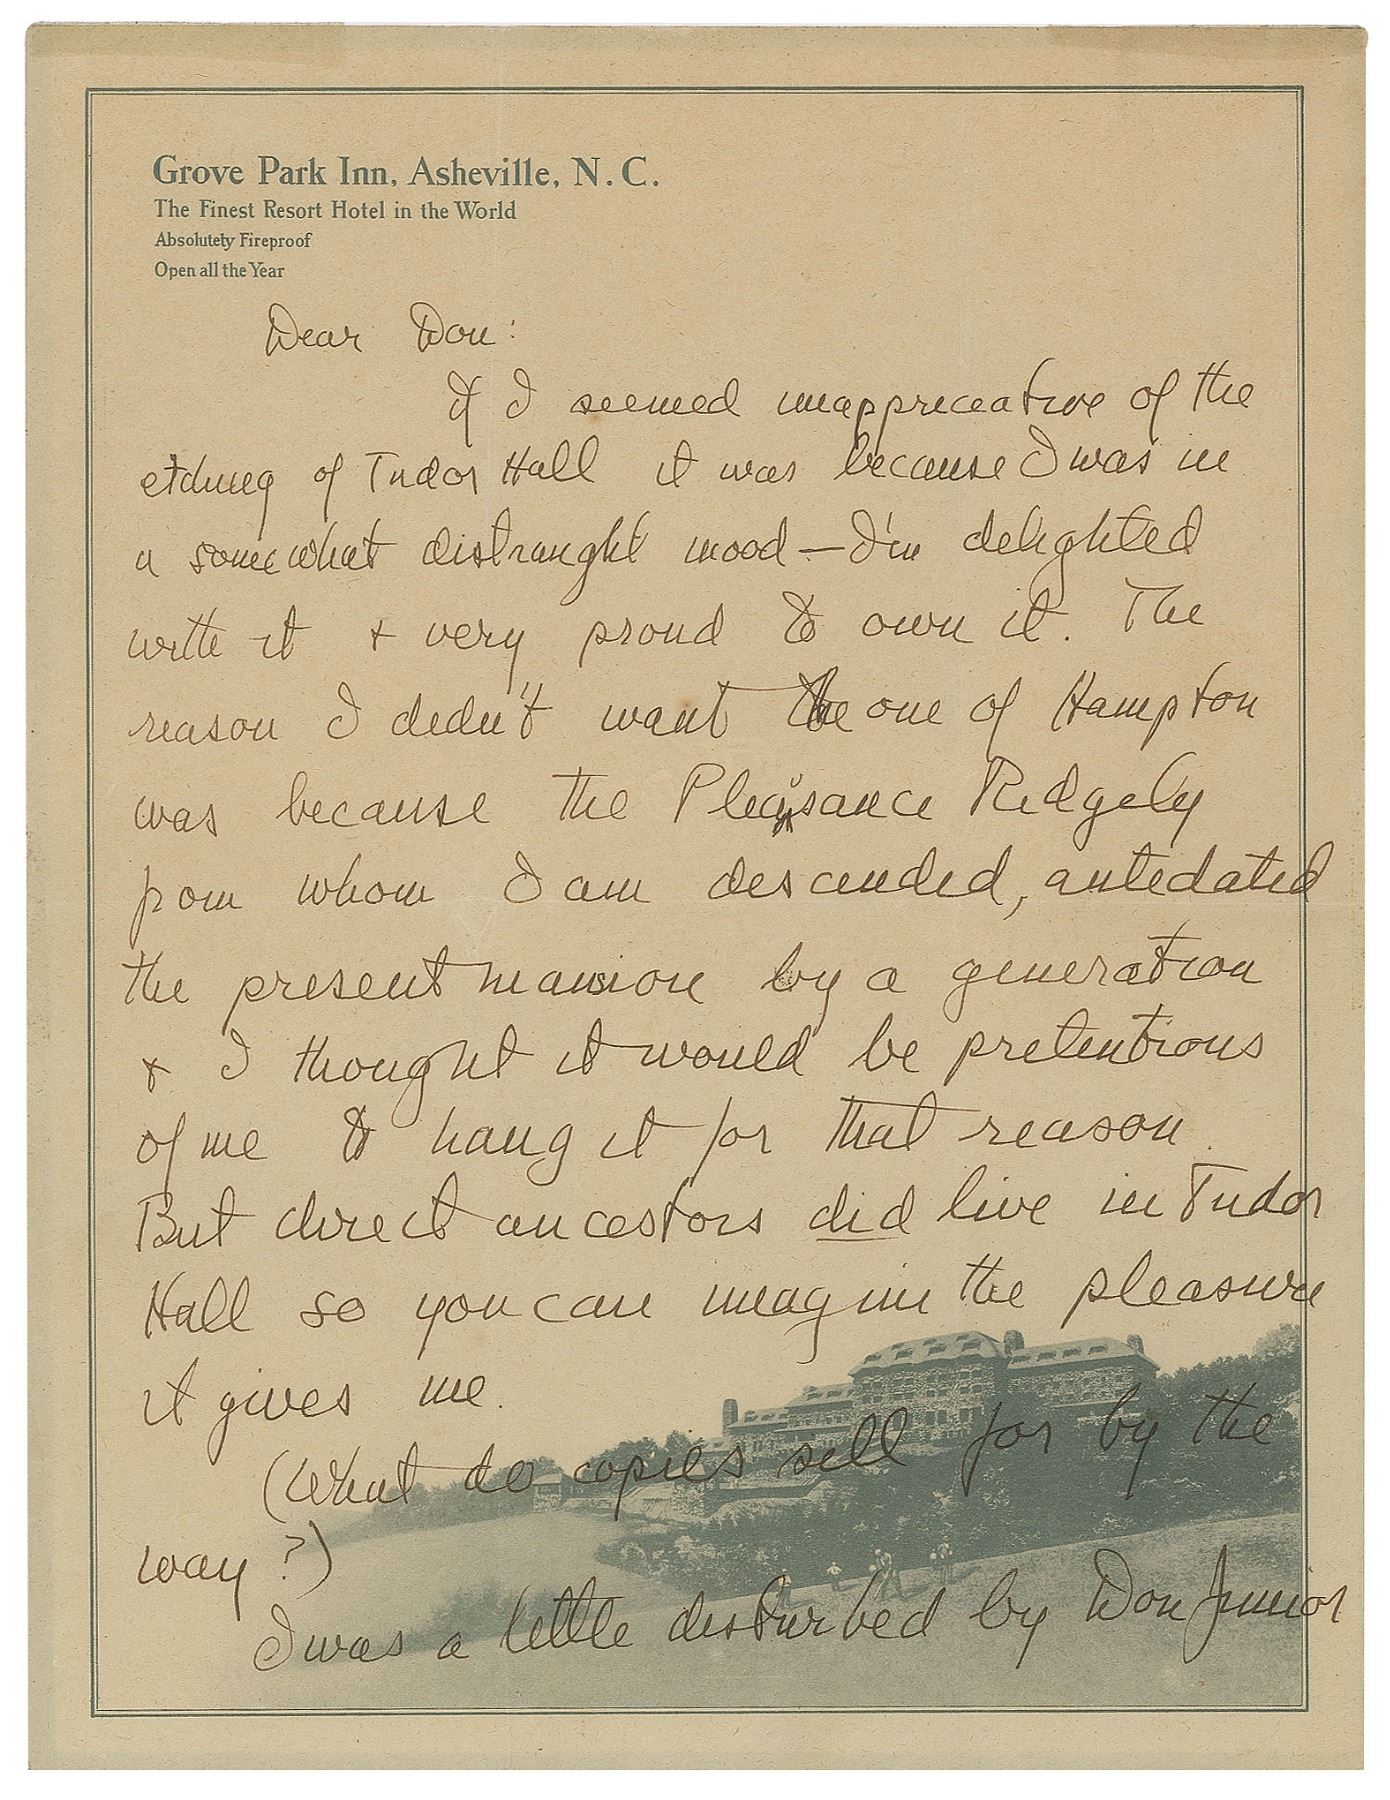 Grove Park Inn, Asheville, N. C.
The Finest Resort Hotel in the World
Absolutely Fireproof
Open all the Year
Dear Don:
If I seemed unappreceative of the
etching of Tudor Hall it was because I was in
a somewhat distraught mood — I'm delighted
with it & very proud to own it. The
reason I didn't want the one of Hampton
was because the Pleasance Ridgely
from whom I am descended, antedated
the present mansion by a generation
& I thought it would be pretentious
of me to hang it for that reason.
But direct ancestors did live in Tudor
Hall so you can imagine the pleasure
it gives me.
(What do copies sell for by the
way?)
I was a little disturbed by Don Junior